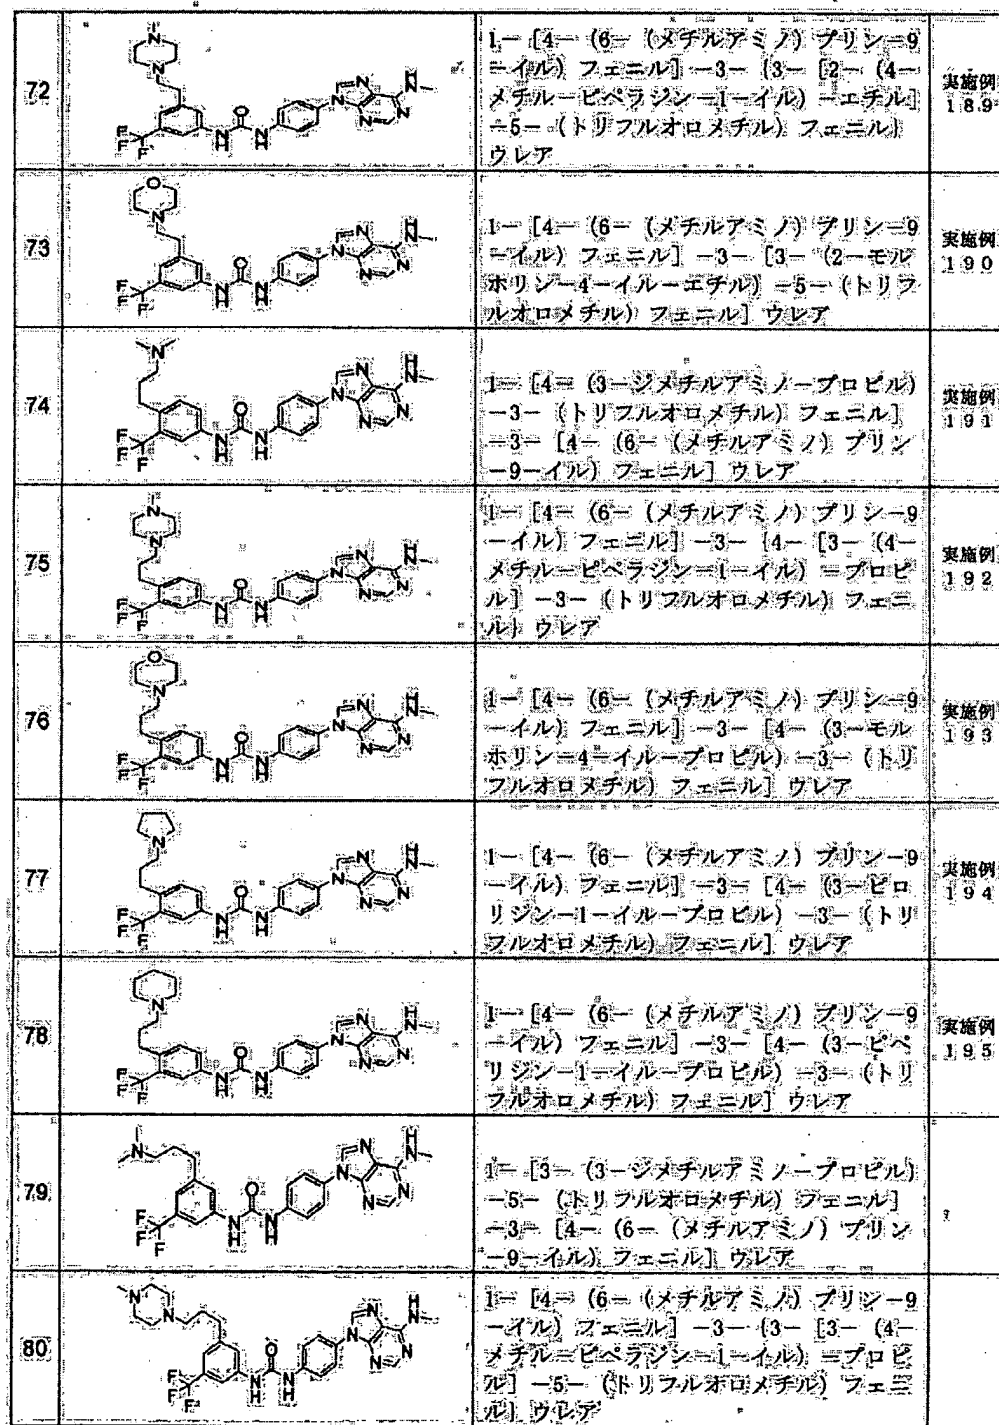 72
1-[4-(6-(メチルアミノ)プリン-9
-イル)フェニル]-3-{3-[2-(4-
メチル-ピペラジン-1-イル)-エチル]
-5-(トリフルオロメチル)フェニル}
ウレア
実施例
189
73
1-[4-(6-(メチルアミノ)プリン-9
-イル)フェニル]-3-[3-(2-モル
ホリン-4-イル-エチル)-5-(トリフ
ルオロメチル)フェニル]ウレア
実施例
190
74
1-[4-(3-ジメチルアミノ-プロピル)
-3-(トリフルオロメチル)フェニル]
-3-[4-(6-(メチルアミノ)プリン
-9-イル)フェニル]ウレア
実施例
191
75
1-[4-(6-(メチルアミノ)プリン-9
-イル)フェニル]-3-{4-[3-(4-
メチル-ピペラジン-1-イル)-プロピ
ル]-3-(トリフルオロメチル)フェニ
ル}ウレア
実施例
192
76
1-[4-(6-(メチルアミノ)プリン-9
-イル)フェニル]-3-[4-(3-モル
ホリン-4-イル-プロピル)-3-(トリ
フルオロメチル)フェニル]ウレア
実施例
193
77
1-[4-(6-(メチルアミノ)プリン-9
-イル)フェニル]-3-[4-(3-ピロ
リジン-1-イル-プロピル)-3-(トリ
フルオロメチル)フェニル]ウレア
実施例
194
78
1-[4-(6-(メチルアミノ)プリン-9
-イル)フェニル]-3-[4-(3-ピペ
リジン-1-イル-プロピル)-3-(トリ
フルオロメチル)フェニル]ウレア
実施例
195
79
1-[3-(3-ジメチルアミノ-プロピル)
-5-(トリフルオロメチル)フェニル]
-3-[4-(6-(メチルアミノ)プリン
-9-イル)フェニル]ウレア
80
1-[4-(6-(メチルアミノ)プリン-9
-イル)フェニル]-3-{3-[3-(4-
メチル-ピペラジン-1-イル)-プロピ
ル]-5-(トリフルオロメチル)フェニ
ル}ウレア